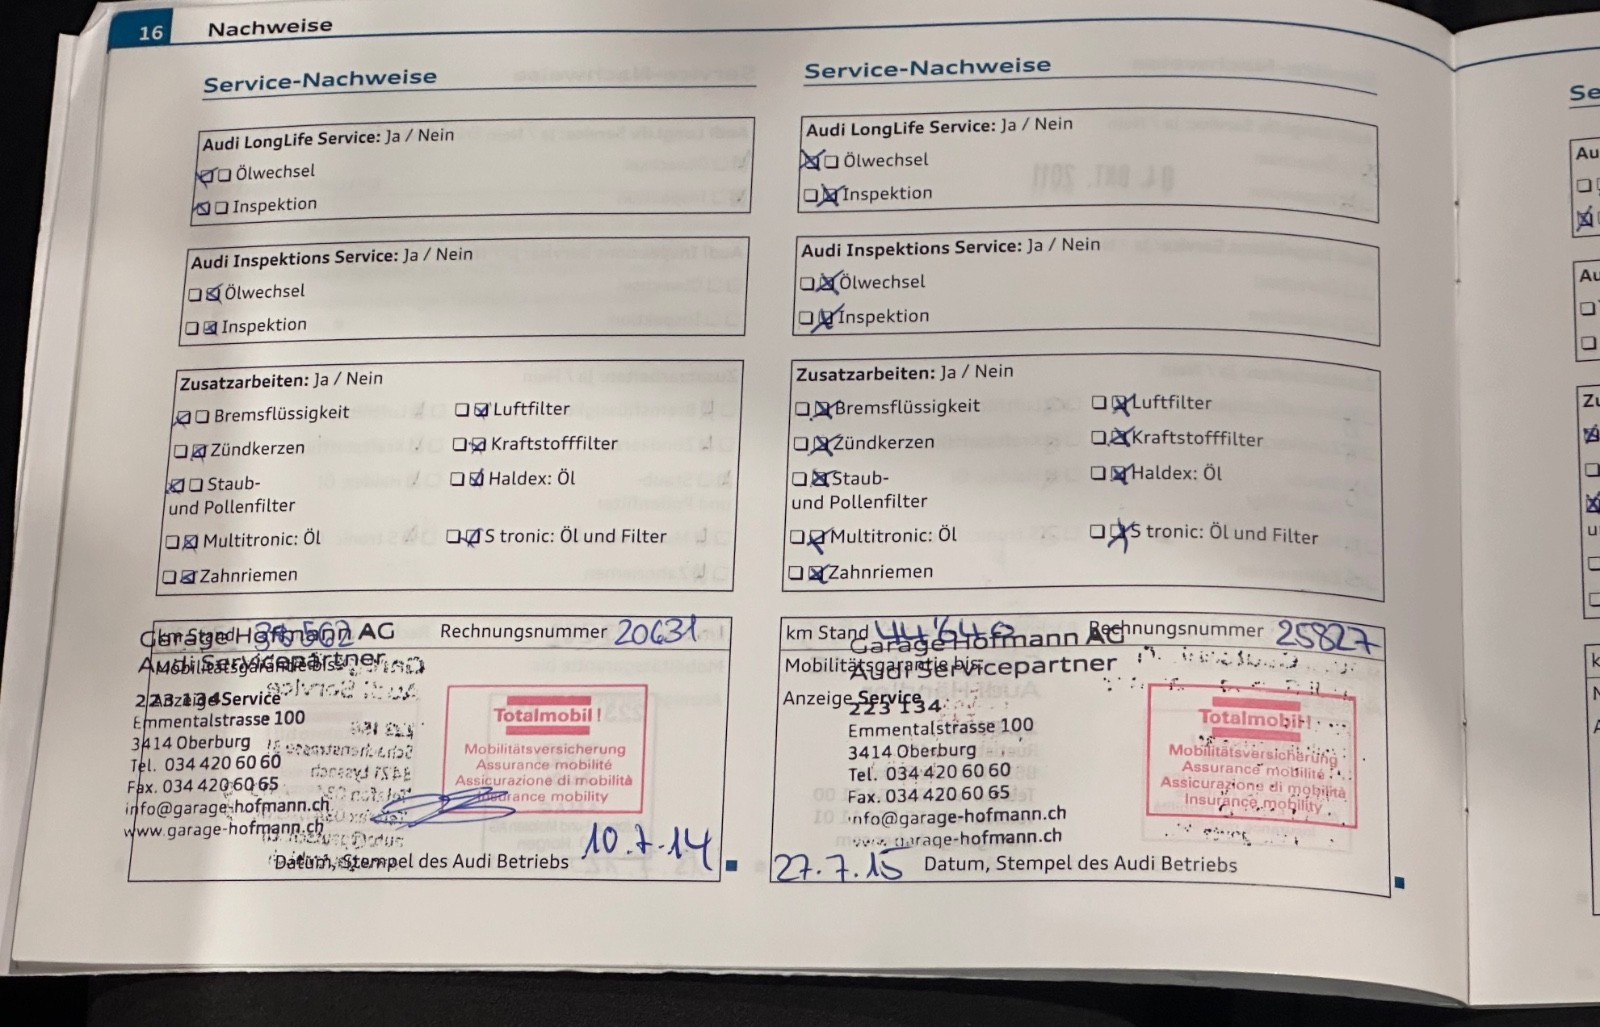 16 Nachweise
Service-Nachweise
Audi LongLife Service: Ja / Nein
Ölwechsel
Inspektion
Audi Inspektions Service: Ja / Nein
Ölwechsel
Inspektion
Zusatzarbeiten: Ja / Nein
Bremsflüssigkeit Luftfilter
Zündkerzen Kraftstofffilter
Staub- Haldex: Öl
und Pollenfilter
Multitronic: Öl S tronic: Öl und Filter
Zahnriemen
km Stand Rechnungsnummer 20631
Garage Hofmann AG
Audi Servicepartner
Mobilitätsgarantie bis
223 134
Anzeige Service
Emmentalstrasse 100
3414 Oberburg
Tel. 034 420 60 60
Fax. 034 420 60 65
info@garage-hofmann.ch
www.garage-hofmann.ch
Totalmobil!
Mobilitätsversicherung
Assurance mobilité
Assicurazione di mobilità
Insurance mobility
10.7.14
Datum, Stempel des Audi Betriebs
Service-Nachweise
Audi LongLife Service: Ja / Nein
Ölwechsel
Inspektion
Audi Inspektions Service: Ja / Nein
Ölwechsel
Inspektion
Zusatzarbeiten: Ja / Nein
Bremsflüssigkeit Luftfilter
Zündkerzen Kraftstofffilter
Staub- Haldex: Öl
und Pollenfilter
Multitronic: Öl S tronic: Öl und Filter
Zahnriemen
km Stand Rechnungsnummer 25827
Garage Hofmann AG
Mobilitätsgarantie bis
Audi Servicepartner
Anzeige Service
223 134
Emmentalstrasse 100
3414 Oberburg
Tel. 034 420 60 60
Fax. 034 420 60 65
info@garage-hofmann.ch
www.garage-hofmann.ch
Totalmobil!
Mobilitätsversicherung
Assurance mobilité
Assicurazione di mobilità
Insurance mobility
27.7.15 Datum, Stempel des Audi Betriebs
Se
Au
Au
Zu